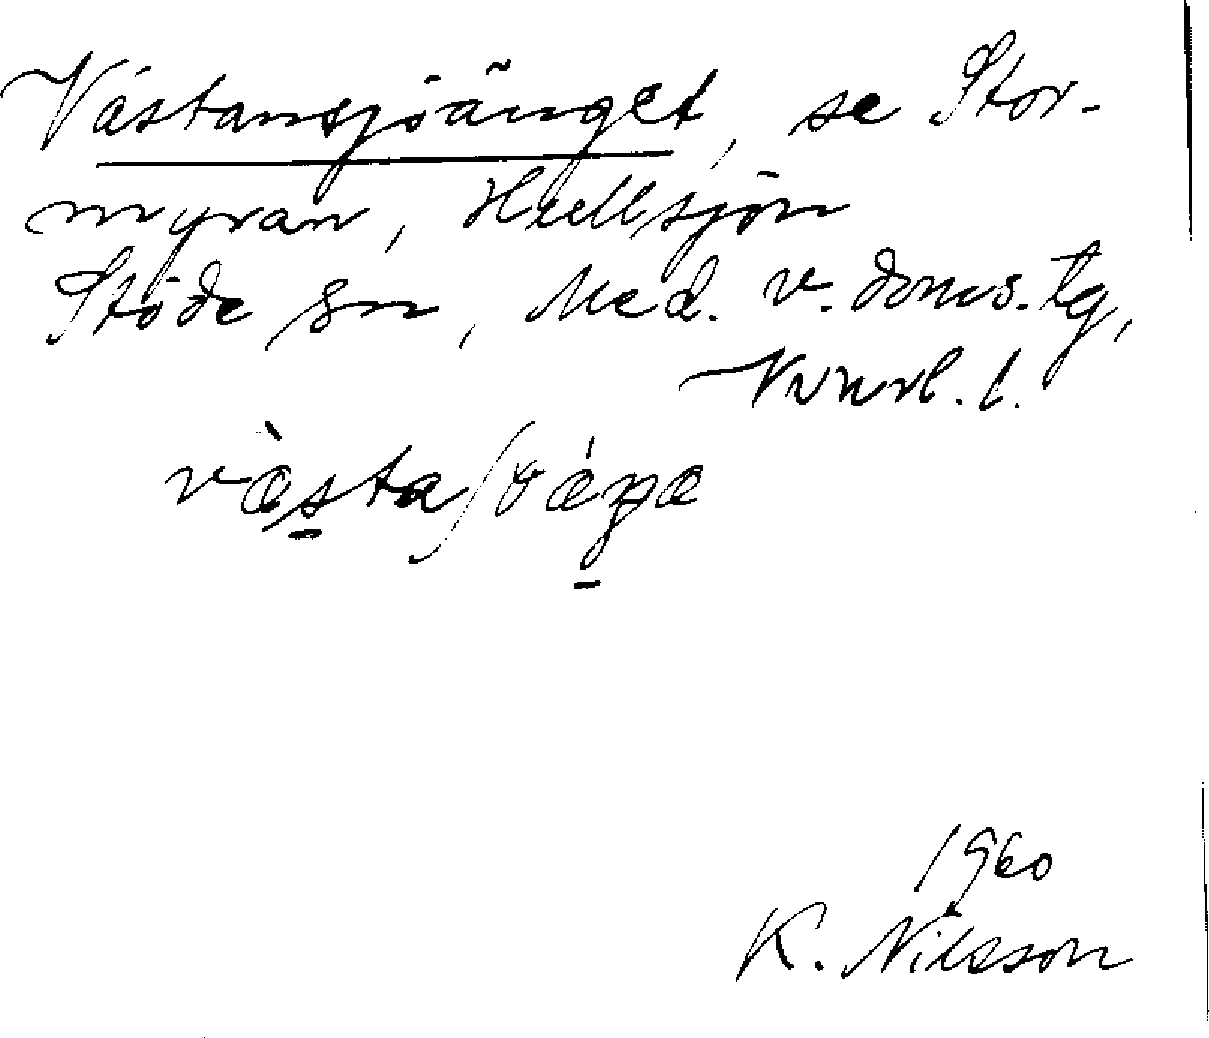 Västansjöänget, se Stor-
myran, Hullsjön
Stöde sn, Med. v. doms. tg,
Vnrl. l.
1960
K. Nilsson